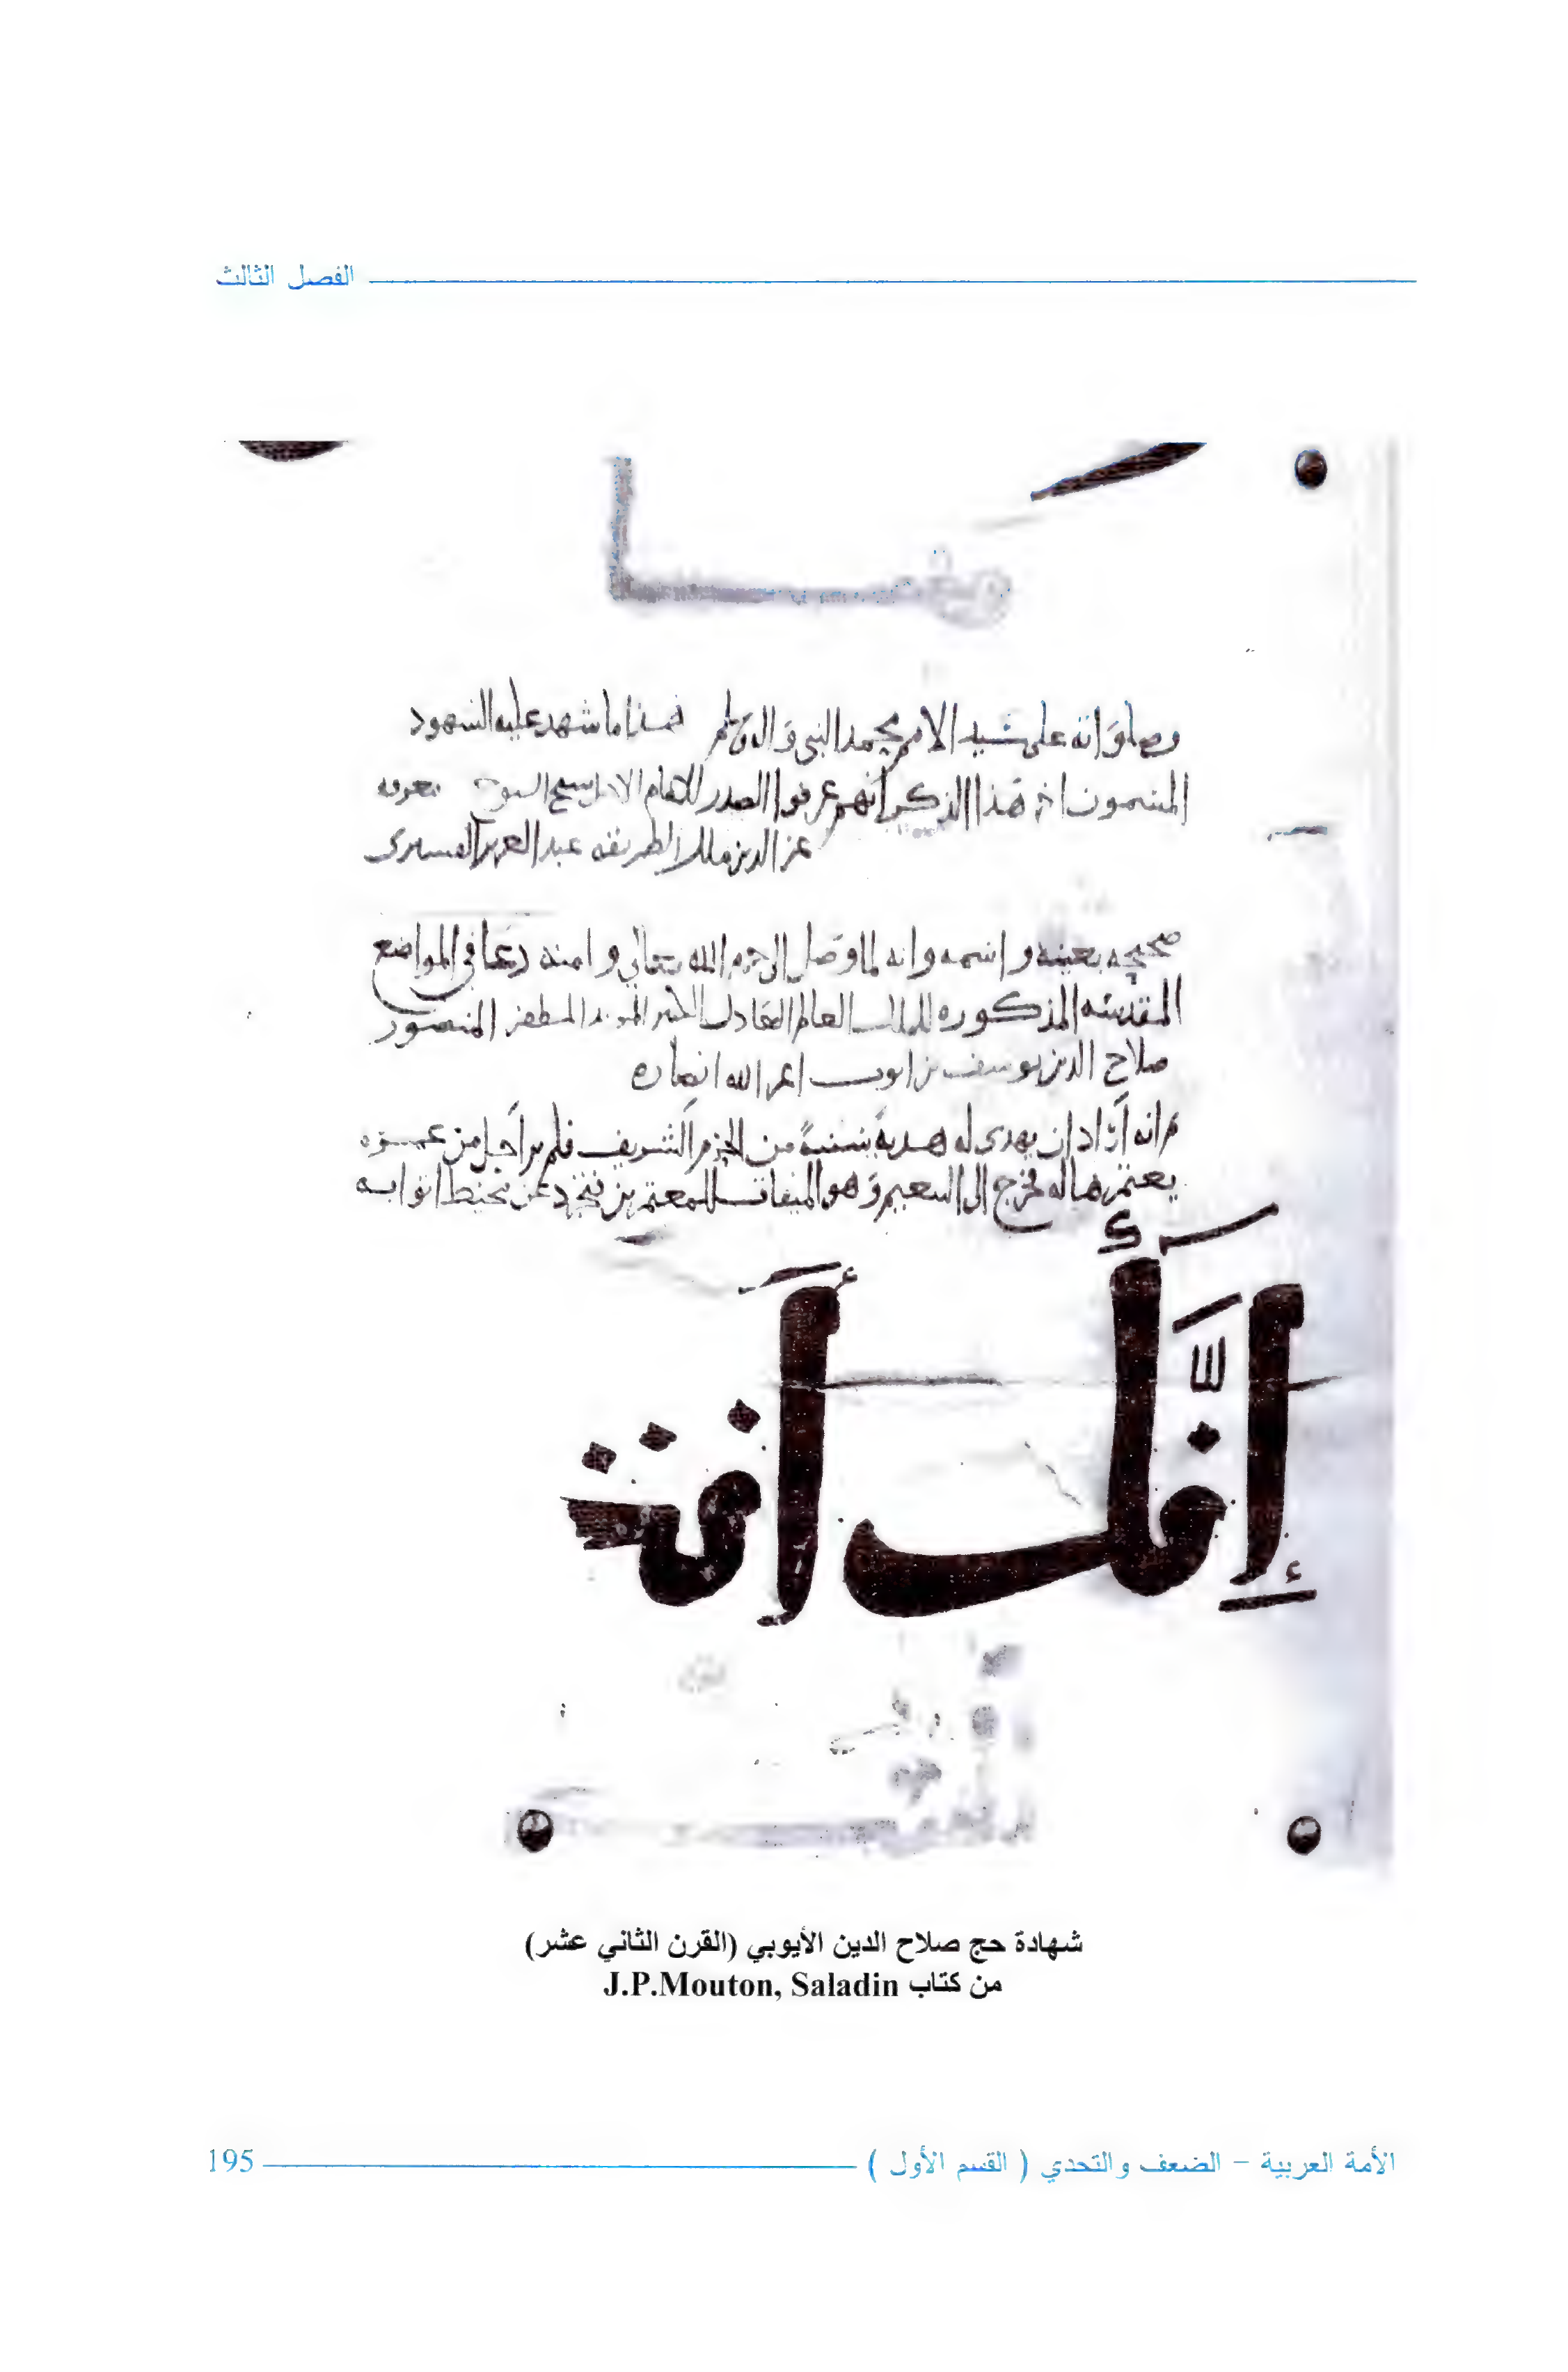 الفصل الثالث
وصلواته على سيد الامم محمد النبي واله وسلم هذا ما شهد عليه الشهود
المسمون اخر هذا الذكر أنهم عرفوا الصدر الامام الاجل معرفه
عز الدين الطريقه عبد العزيز
صحيحه بعينه واسمه وانه لما وصل الى حرم الله تعالى وامنه دعا في المواضع
المقدسه المذكوره للملك العالم العادل المظفر المنصور
صلاح الدين يوسف بن ايوب اعز الله انصاره
وانه أراد ان يهدى له هدية سنية من الحرم الشريف فلم ير أجل من عمره
يعتمرها له فخرج الى التنعيم وهو الميقات للمعتمرين
إنك أنت
شهادة حج صلاح الدين الأيوبي (القرن الثاني عشر)
من كتاب J.P.Mouton, Saladin
الأمة العربية - الضعف والتحدي ( القسم الأول ) 195